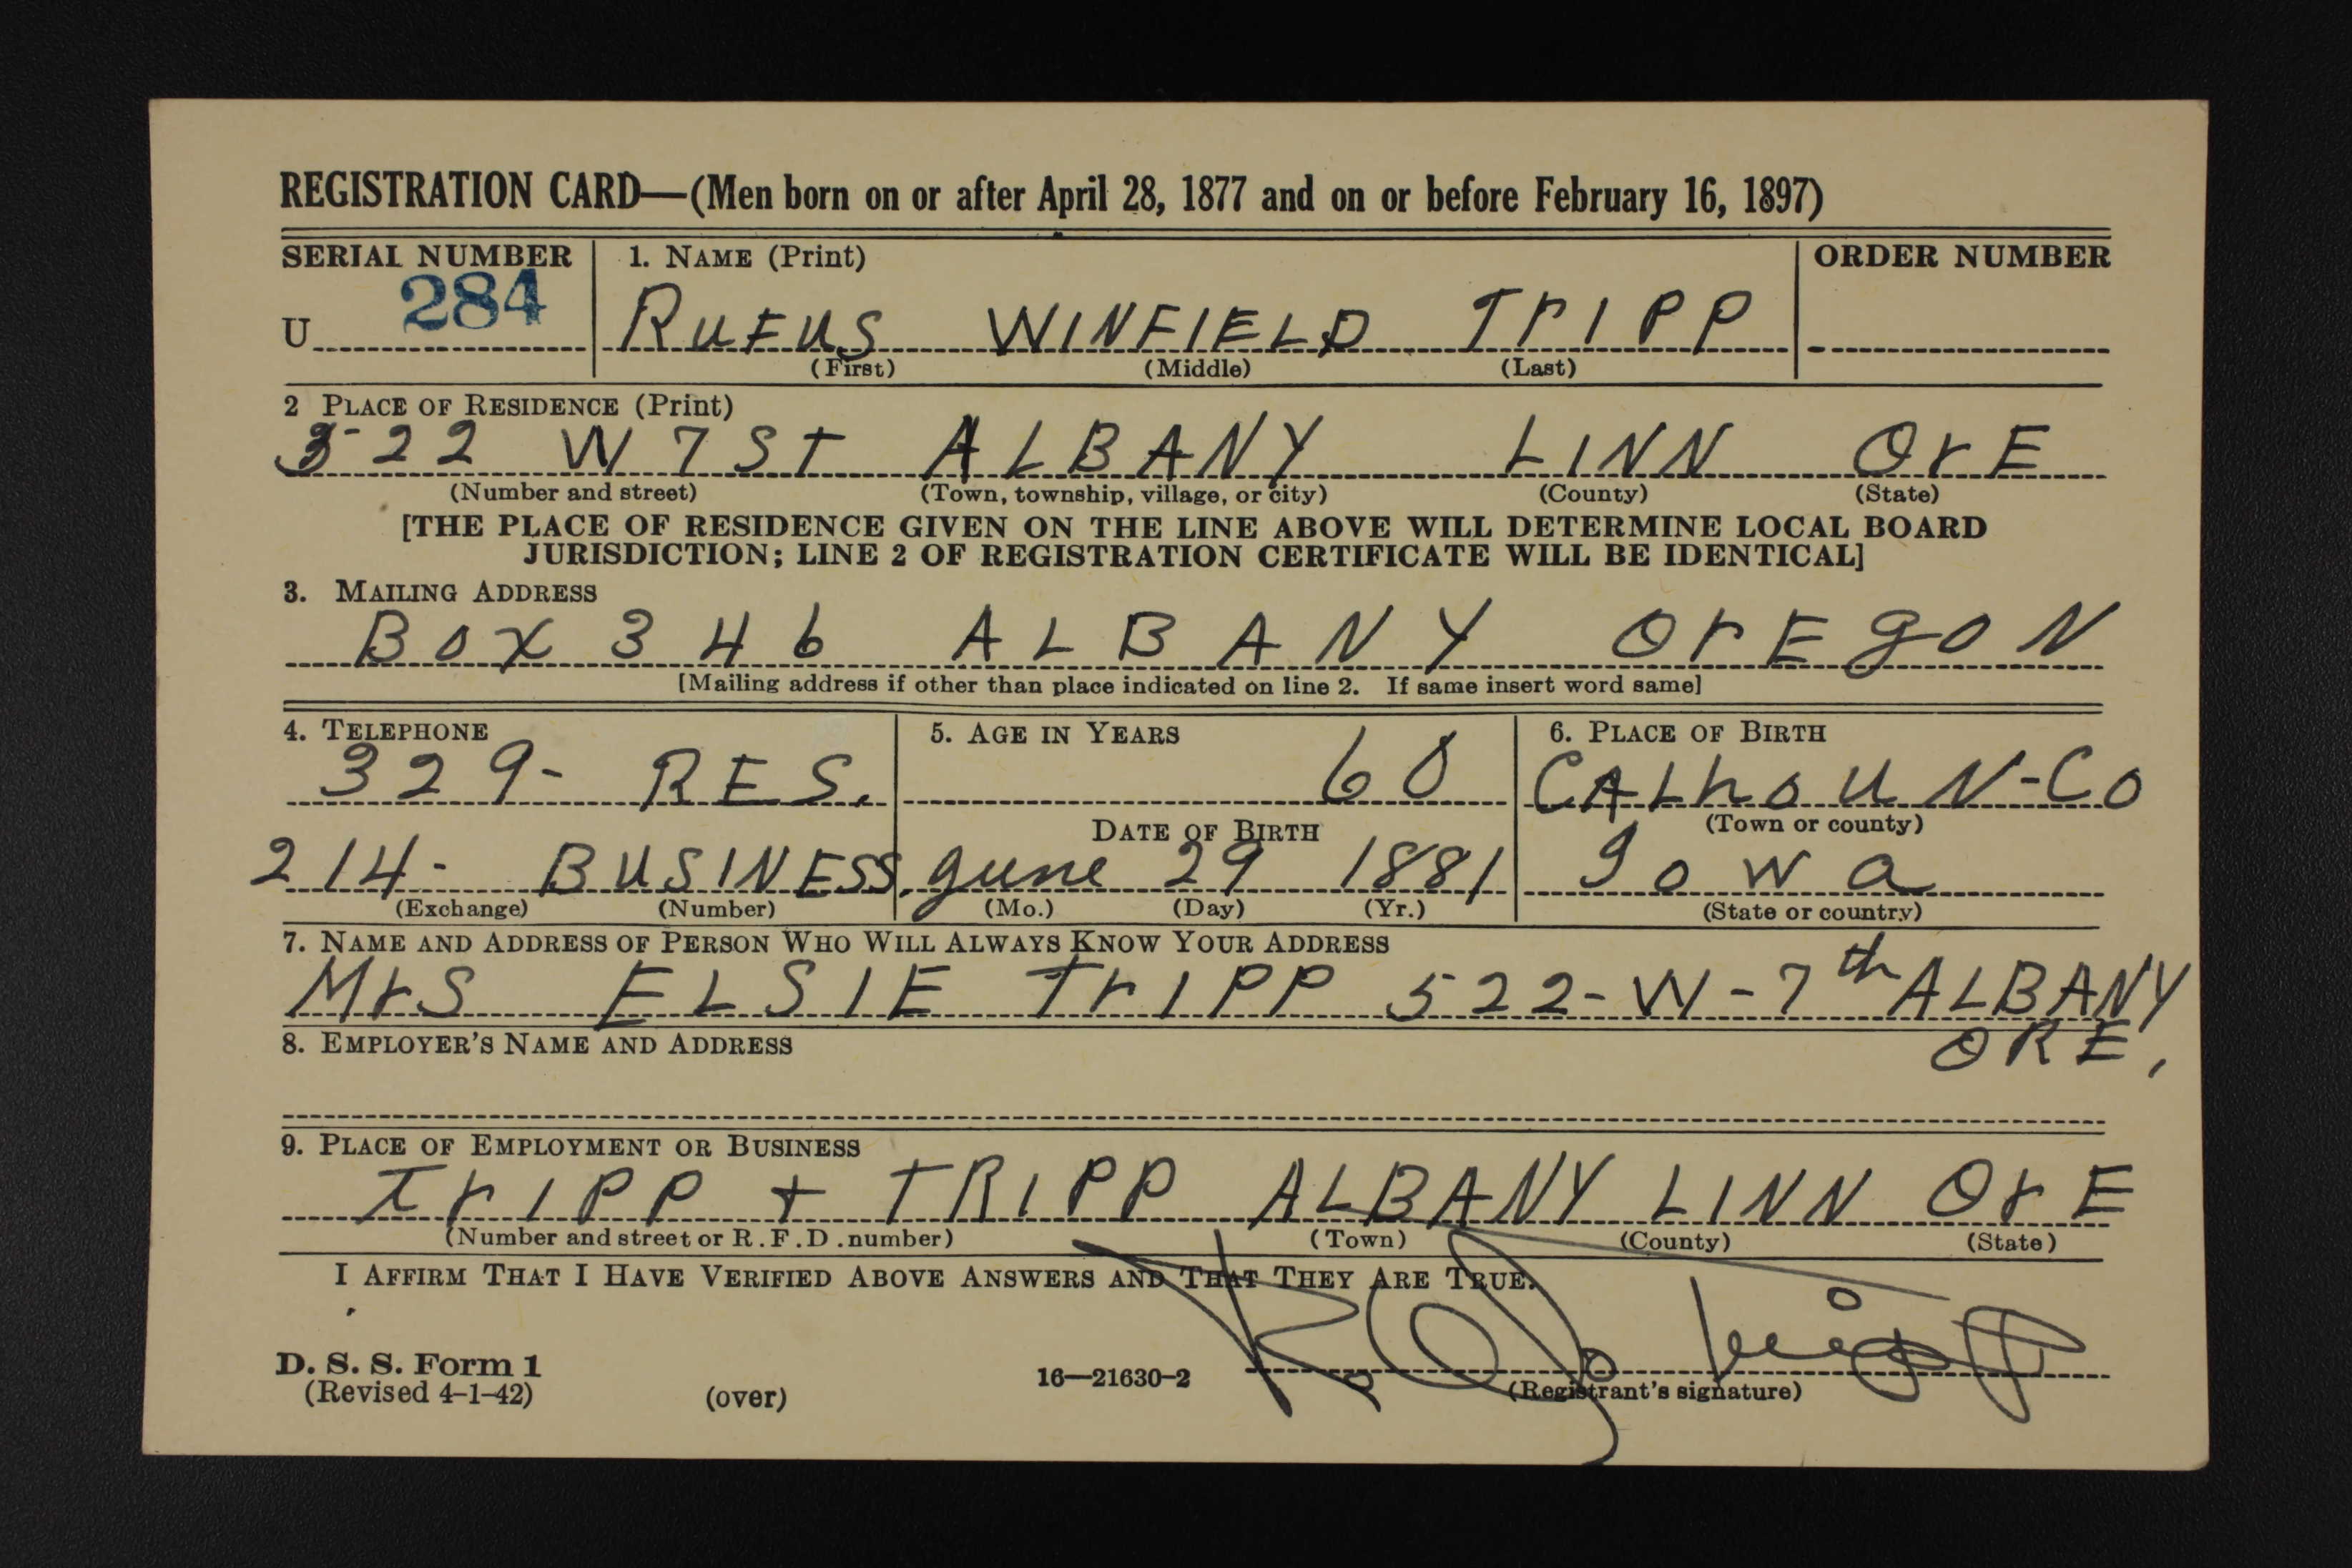 REGISTRATION CARD—(Men born on or after April 28, 1877 and on or before February 16, 1897)
SERIAL NUMBER 1. NAME (Print) ORDER NUMBER
U 284 RUFUS WINFIELD TrIPP
(First) (Middle) (Last)
2 PLACE OF RESIDENCE (Print)
522 W 7 ST ALBANY LINN OrE
(Number and street) (Town, township, village, or city) (County) (State)
[THE PLACE OF RESIDENCE GIVEN ON THE LINE ABOVE WILL DETERMINE LOCAL BOARD
JURISDICTION; LINE 2 OF REGISTRATION CERTIFICATE WILL BE IDENTICAL]
3. MAILING ADDRESS
Box 346 ALBANY OrEgoN
[Mailing address if other than place indicated on line 2. If same insert word same]
4. TELEPHONE 5. AGE IN YEARS 6. PLACE OF BIRTH
329- RES. 60 CALhoUN-Co
DATE OF BIRTH (Town or county)
214- BUSINESS. June 29 1881 Iowa
(Exchange) (Number) (Mo.) (Day) (Yr.) (State or country)
7. NAME AND ADDRESS OF PERSON WHO WILL ALWAYS KNOW YOUR ADDRESS
MrS ELSIE TrIPP 522-W-7th ALBANY
ORE,
8. EMPLOYER'S NAME AND ADDRESS
9. PLACE OF EMPLOYMENT OR BUSINESS
TrIPP + TRIPP ALBANY LINN OrE
(Number and street or R.F.D. number) (Town) (County) (State)
I AFFIRM THAT I HAVE VERIFIED ABOVE ANSWERS AND THAT THEY ARE TRUE.
D. S. S. Form 1
(Revised 4-1-42) (over) 16—21630-2 (Registrant's signature)